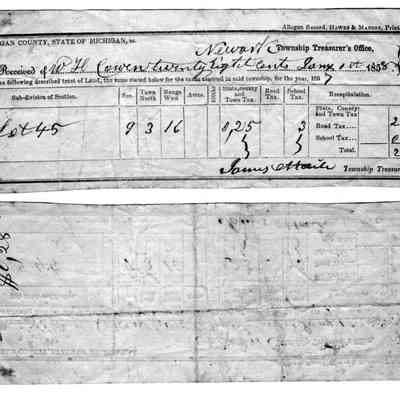 Allegan Record, HAWES & MANSON, Print
GAN COUNTY, STATE OF MICHIGAN, ss.
Newark Township Treasurer's Office,
Received of W H Cowen twenty eight Cents Jany 1st 1858
the following described tract of Land, the sums stated below for the taxes assessed in said township, for the year, 1857
Sub-division of Section. Sec. Town North Range West Acres. State, County and Town Tax. Road Tax. School Tax. Recapitulation.
Lot 45 9 3 16 8,25 3
State, County and Town Tax 2
Road Tax....
School Tax....
Total. 2
Township Treasurer
$0,28